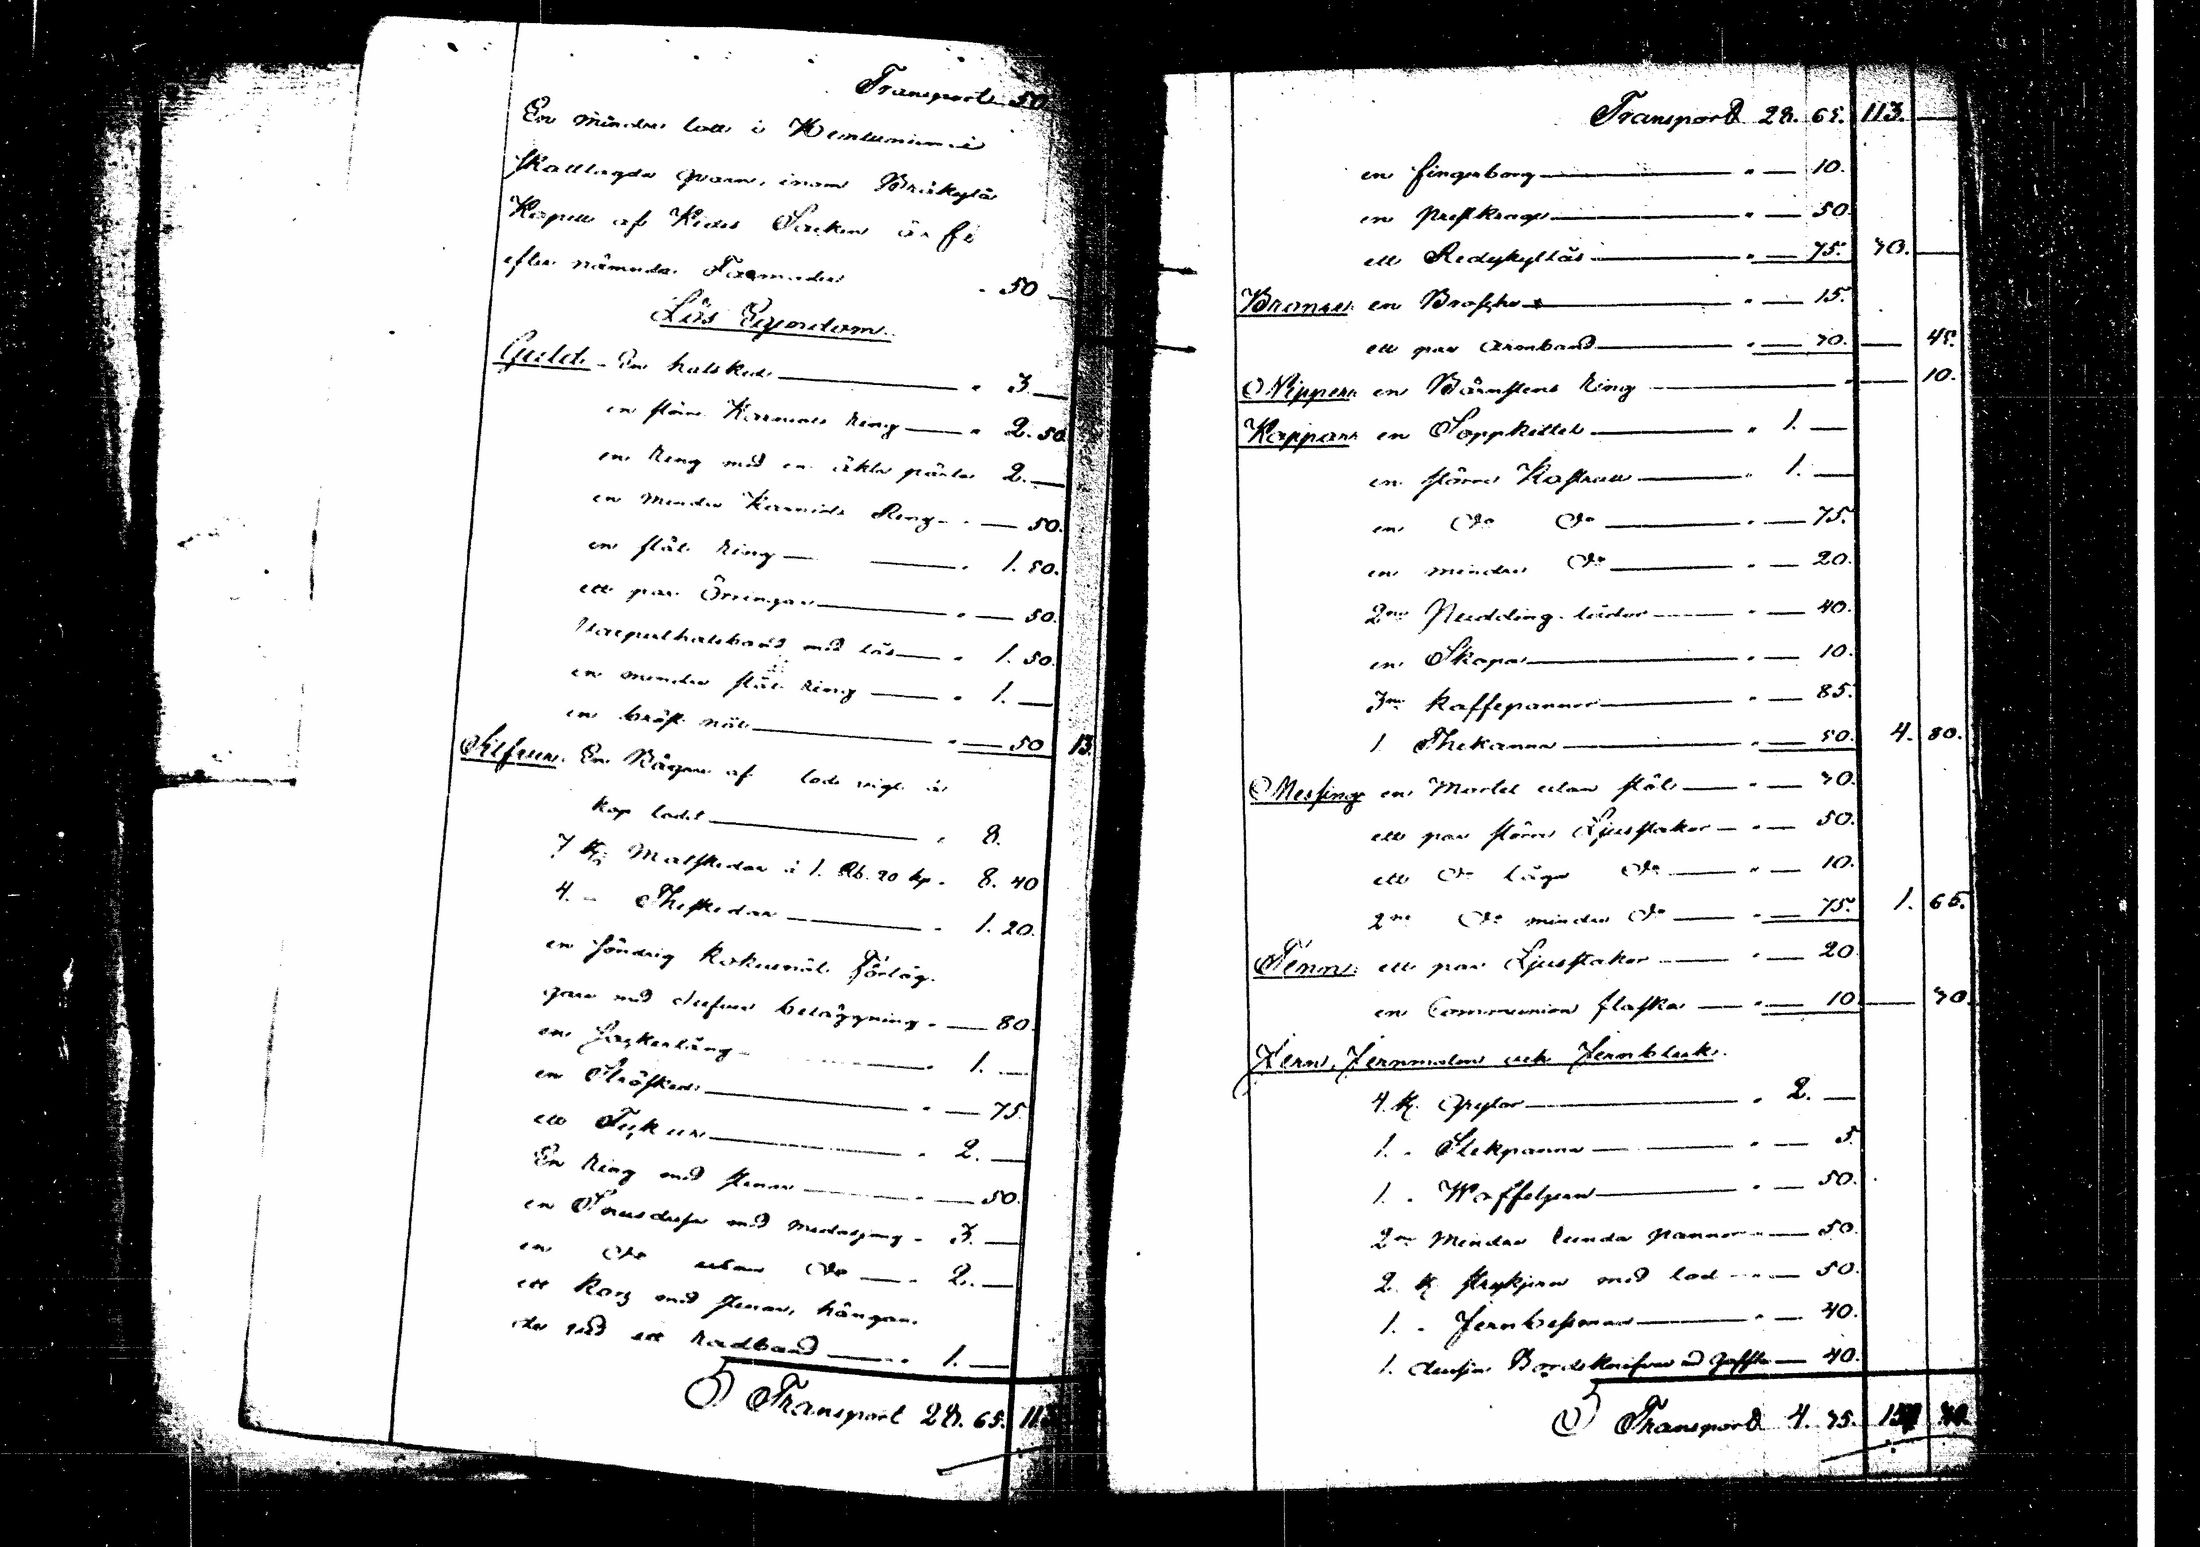 Transport 50
En mindre lott i
skattlagda qvarn, inom Bräkylä
Kapell af Kides Socken är fe
efter nämnda " 50 —
Lös Egendom.
Guld. En halsked — " 3. —
en större Karniols ring — " 2. 50
en ring med en äkta pärla 2. —
en mindre Karniols Ring — 50.
en slät ring — " 1. 50.
ett par Örringar — " — 50.
halsband med lås — " 1. 50.
en mindre slät ring — " 1. —
en bröst nål — " — 50 13.
Silfver. En Rågara af lods vigt är
kop lodet — " 8.
7 st. Matskedar à 1. Rb. 20 kp. 8. 40
4. " Theskedar — " 1. 20.
en söndrig kokusnöt Förläg-
gare med silfver beläggning " — 80.
en Sockertång — " 1. —
en StröSked — " — 75.
ett — " 2. —
En ring med stenar — " — 50.
en Snusdosa med " 3. —
en do utan do — " 2. —
ett Kors med stenar, hängan-
de vid ett radband — " 1. —
Transport 28. 65. 113
Transport 28. 65. 113. —
en fingerborg — " — 10.
en prestkrage — " — 50.
ett — " — 75. 30. —
Bronse. en Broche — " — 15.
ett par Armband — " — 30. — 45.
Nipper. en Bärnstens ring — " — 10.
Koppar. en Soppkittel — " 1. —
en större Kastrull — " 1. —
en do do — " — 75.
en mindre do — " — 20.
2ne Pudding lådor — " — 40.
en Skopa — " — 10.
3ne kaffepannor — " — 85.
1 Thekanna — " — 50. 4. 80.
Messing en Mortel utan stöt — " — 30.
ett par större Ljusstakar — " — 50.
ett do låga do — " — 10.
2ne do mindre do — " — 75. 1. 65.
Tenn. ett par Ljusstakar — " — 20
en Communion flaska — " — 10 — 30.
Jern, Jernmalm och Jernbleck.
4. st. Grytor — " 2. —
1. " Stekpanna — " — 5.
1. " Waffeljern — " — 50.
2ne Mindre runda pannor " — 50.
2. st strykjern med lod — " — 50.
1. " Jernbesman — " — 40.
1. dussin Bordsknifvar med gafflar — 40.
Transport 4. 35.